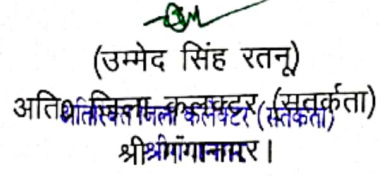 (उम्मेद सिंह रतनू)
अति० जिला कलक्टर (सतर्कता)
अतिरिक्त जिला कलेक्टर (सतर्कता)
श्रीगंगानगर।